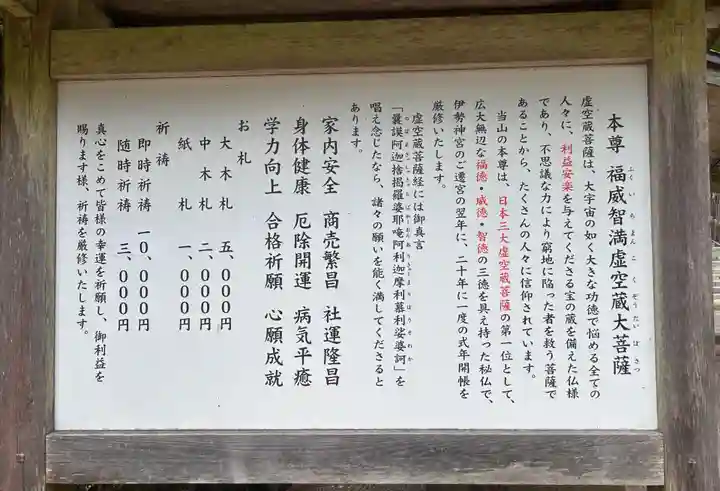 本尊 福威智満虚空蔵大菩薩
虚空蔵菩薩は、大宇宙の如く大きな功徳で悩める全ての
人々に、利益安楽を与えてくださる宝の蔵を備えた仏様
であり、不思議な力により窮地に陥った者を救う菩薩で
あることから、たくさんの人々に信仰されています。
当山の本尊は、日本三大虚空蔵菩薩の第一位として、
広大無辺な福徳・威徳・智徳の三徳を具え持った秘仏で、
伊勢神宮のご遷宮の翌年に、二十年に一度の式年開帳を
厳修いたします。
虚空蔵菩薩経には御真言
「曩謨阿迦捨掲羅婆耶唵阿利迦摩利慕利娑婆訶」を
唱え念じたなら、諸々の願いを能く満してくださると
あります。
家内安全 商売繁昌 社運隆昌
身体健康 厄除開運 病気平癒
学力向上 合格祈願 心願成就
お札
大木札 五、〇〇〇円
中木札 二、〇〇〇円
紙札 一、〇〇〇円
祈祷
即時祈祷 一〇、〇〇〇円
随時祈祷 三、〇〇〇円
真心をこめて皆様の幸運を祈願し、御利益を
賜ります様、祈祷を厳修いたします。